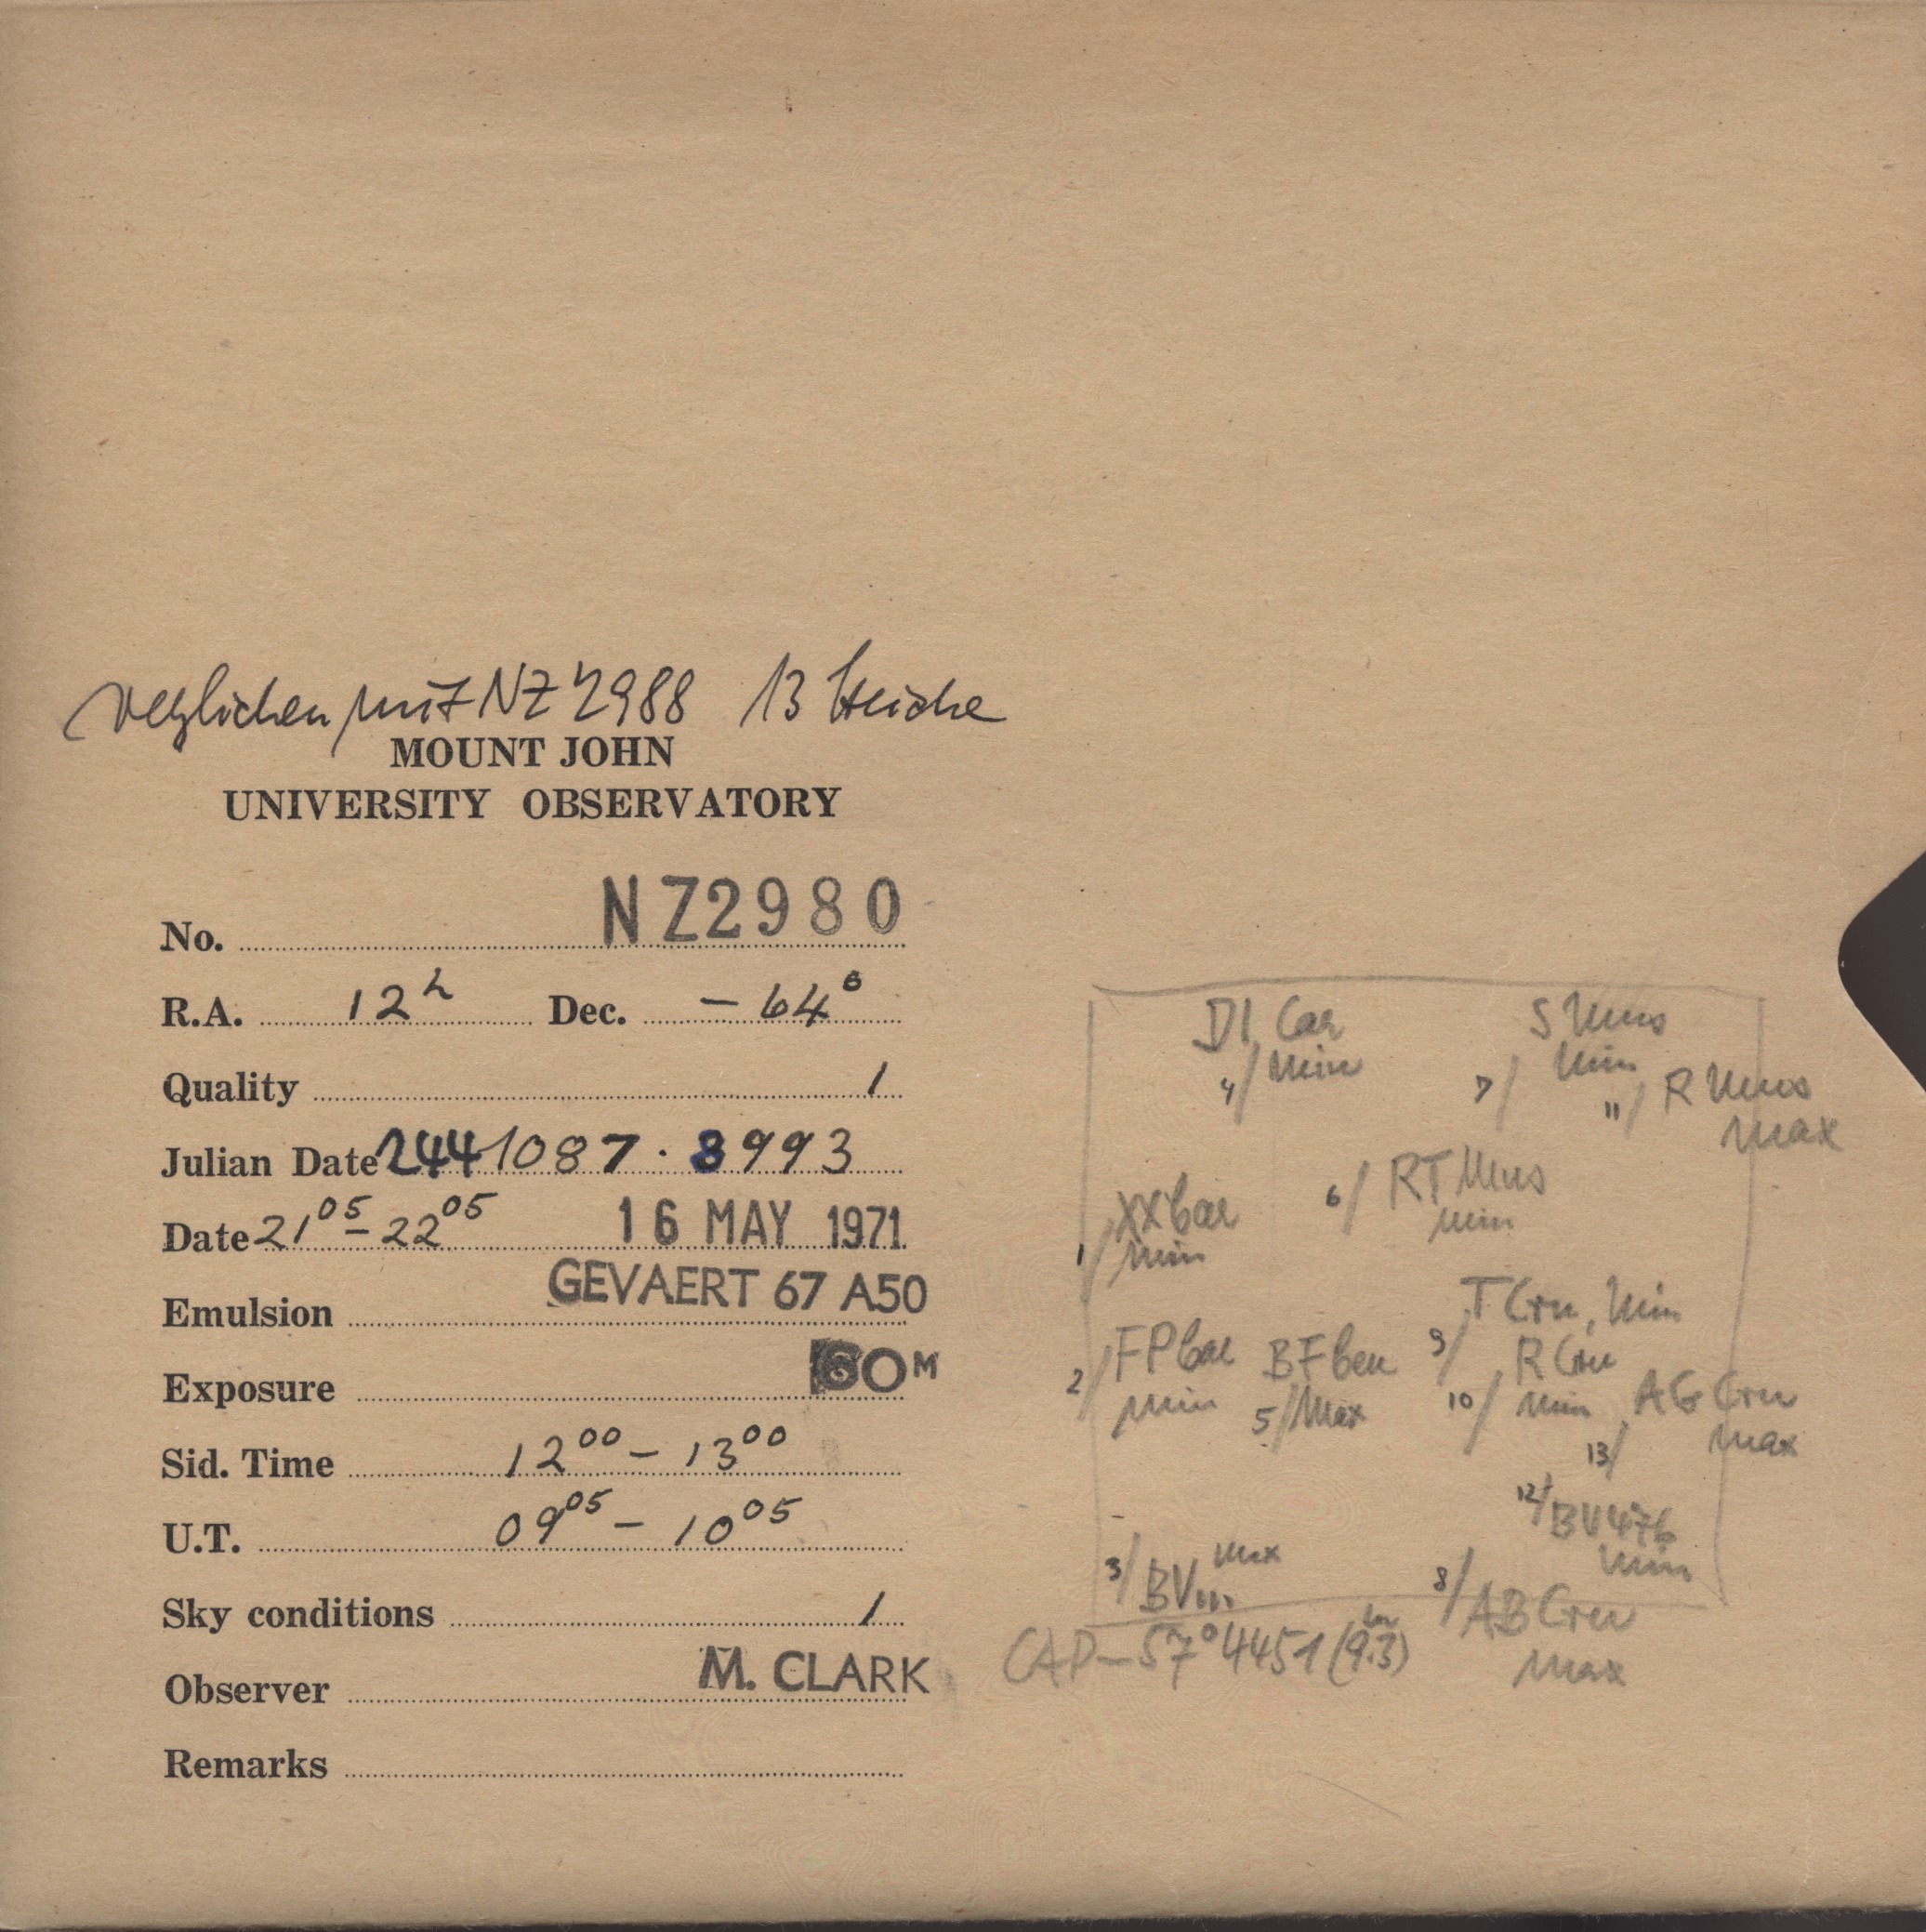 verglichen mit NZ 2988 13 Striche
MOUNT JOHN
UNIVERSITY OBSERVATORY
No. NZ2980
R.A. 12h Dec. -64°
Quality 1
Julian Date 2441087.8993
Date 21 05 - 22 05 16 MAY 1971
Emulsion GEVAERT 67 A50
Exposure 60M
Sid. Time 12 00 - 13 00
U.T. 09 05 - 10 05
Sky conditions 1
Observer M. CLARK
Remarks
DI Car
4/ min
S Mus
7/ min
11/ R Mus
max
XX Car
1/ min
6/ RT Mus
min
T Cru, min
9/
2/ FP Car
min
BF Cen
5/ Max
R Cru
10/ min
AG Cru
13/ max
12/ BV 476
min
3/ BV max
8/ AB Cru
max
CAP-57°4451 (9.3)